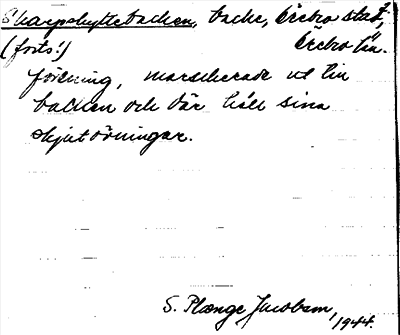 Skarpskyttebacken, backe, Örebro stad,
(forts.) Örebro län.
förening, marscherade ut till
backen och där höll sina
skjutövningar.
S. Plænge Jacobson,
1944.